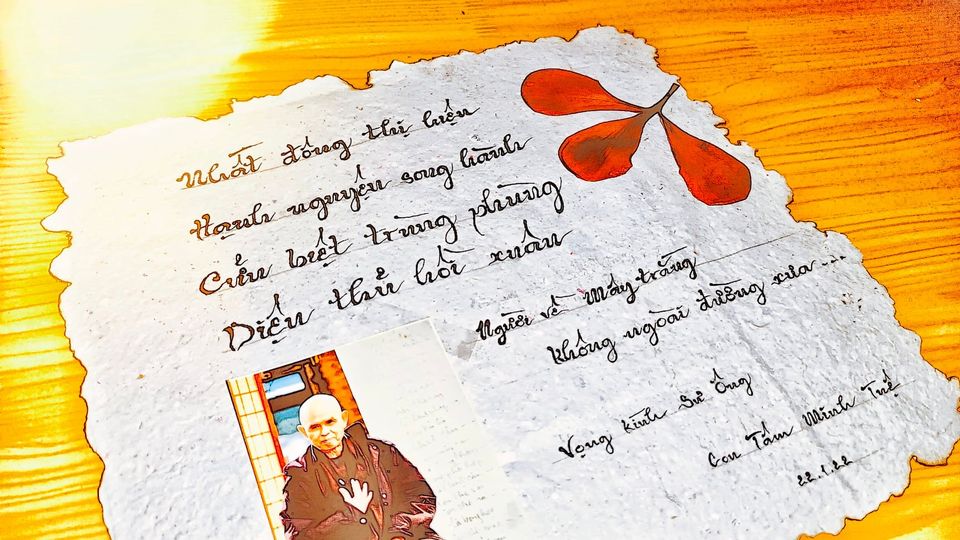 Nhất đông thị hiện
Hạnh nguyện song hành
Cửu biệt trùng phùng
Diệu thủ hồi xuân
Người về mây trắng
Không ngoài đường xưa ...
Vọng kính Sư Ông
Con Tâm Minh Tuệ
22.1.22